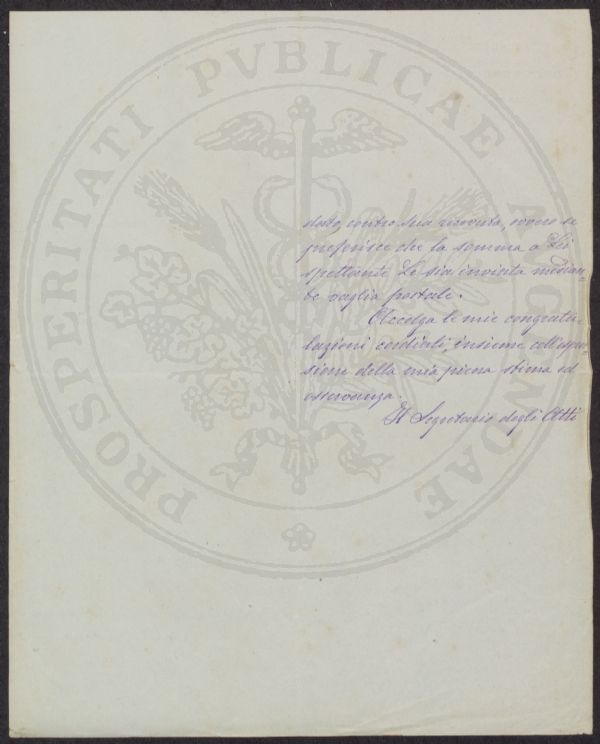 PROSPERITATI PVBLICAE AVGENDAE
dato, contro sua ricevuta, ovvero se
preferisce che la somma a Lei
spettante Le sia inviata median-
te vaglia postale.
Accolga le mie congratu-
lazioni cordiali, insieme coll'espres-
sione della mia piena stima ed
osservanza.
Il Segretario degli Atti